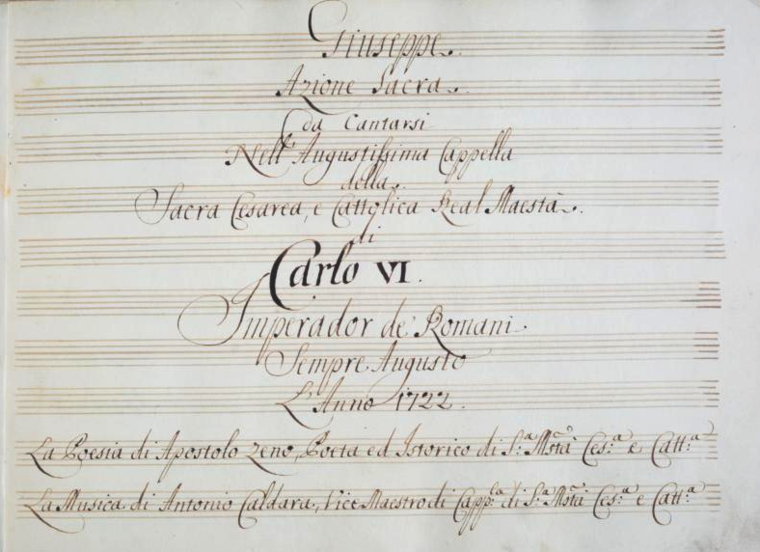 Giuseppe.
Azione Sacra.
da Cantarsi
Nell' Augustissima Cappella
della.
Sacra Cesarea, e Cattolica Real Maestà.
di
Carlo VI.
Imperador de' Romani.
Sempre Augusto
L'Anno 1722.
La Poesia di Apostolo Zeno, Poeta ed Istorico di S.ª M.stà Ces.ª e Catt.ª
La Musica di Antonio Caldara, Vice Maestro di Capp.la di S.ª M.stà Ces.ª e Catt.ª